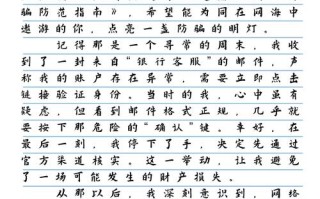 骗防范指南》，希望能为同在网海中
遨游的你，点亮一盏防骗的明灯。
记得那是一个寻常的周末，我收
到了一封来自“银行客服”的邮件，声
称我的账户存在异常，需要立即点击
链接验证身份。当时的我，心中虽有
疑虑，但看到邮件格式正规，几乎就
要按下那危险的“确认”键。幸好，在
最后一刻，我停下了手，决定先通过
官方渠道核实。这一举动，让我避免
了一场可能发生的财产损失。
从那以后，我深刻意识到，网络